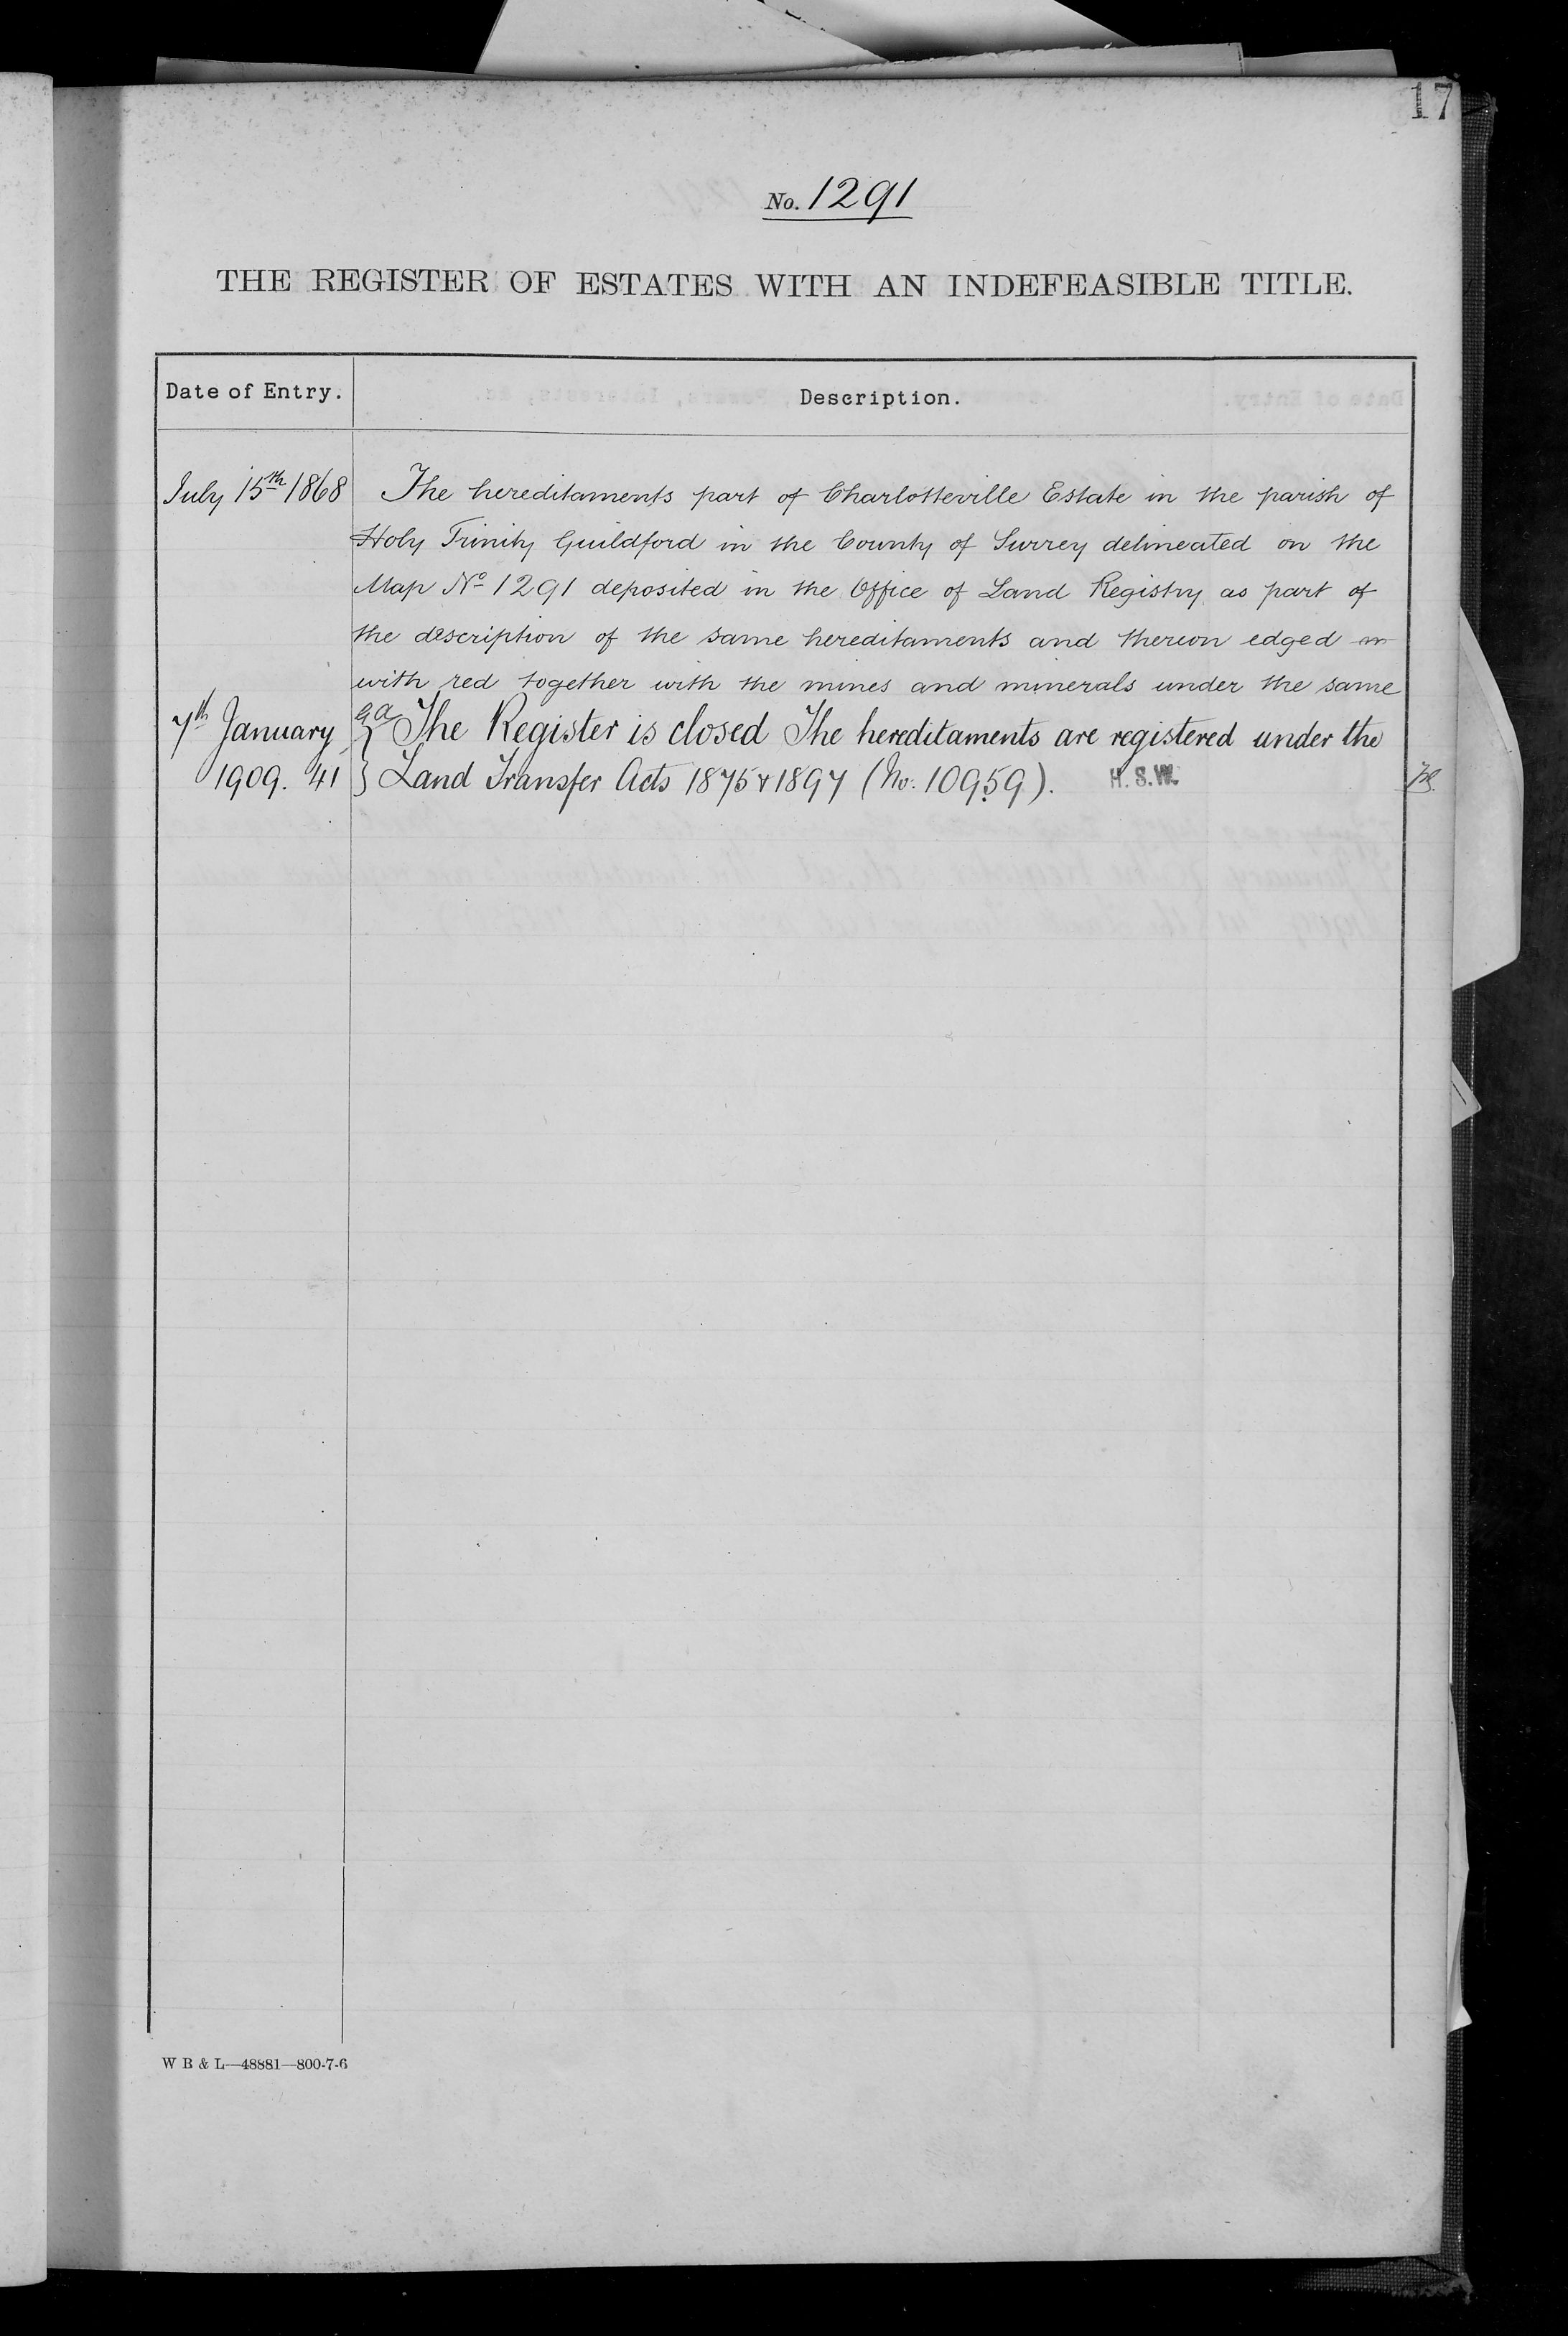 17
No. 1291
THE REGISTER OF ESTATES WITH AN INDEFEASIBLE TITLE.
Date of Entry. Description.
July 15th 1868 The hereditaments part of Charlotteville Estate in the parish of
Holy Trinity Guildford in the County of Surrey delineated on the
Map No 1291 deposited in the Office of Land Registry as part of
the description of the same hereditaments and thereon edged in
with red together with the mines and minerals under the same
7th January The Register is closed The hereditaments are registered under the
1909. 41 Land Transfer Acts 1875 & 1897 (No: 10959). H.S.W.
W B & L—48881—800-7-6